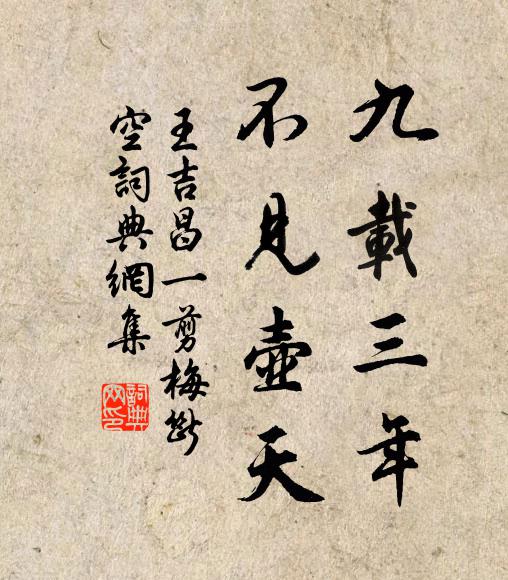 九載三年
不見壺天
王吉昌一剪梅斷
空詞典網集
詞典網印